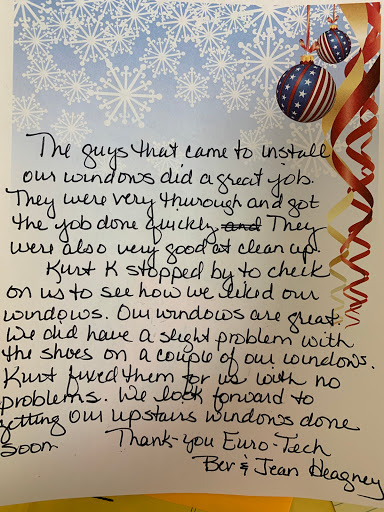 The guys that came to install
our windows did a great job.
They were very thurough and got
the job done quickly. and They
were also very good at clean up.
Kurt K stopped by to check
on us to see how we liked our
windows. Our windows are great.
We did have a slight problem with
the shoes on a couple of our windows.
Kurt fixed them for us with no
problems. We look forward to
getting our upstairs windows done
soon
Thank-you Euro-Tech
Bev & Jean Heagney